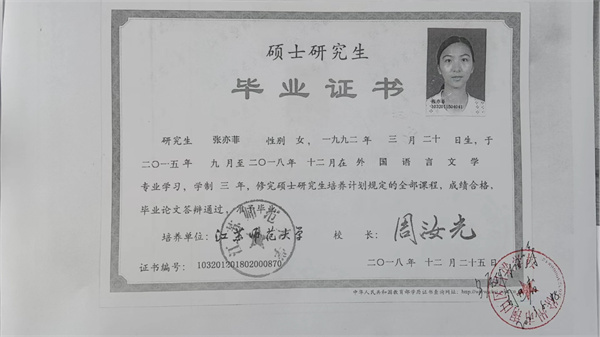 硕士研究生
毕业证书
张亦菲
研究生 张亦菲 性别 女，一九九二年 三 月 二十 日生，于
二〇一五年 九月至二〇一八年 十二月在 外国语言文学
专业学习，学制 三 年，修完硕士研究生培养计划规定的全部课程，成绩合格，
毕业论文答辩通过，准予毕业。
培养单位：江苏师范大学 校 长：周汝光
证书编号：103201201802000870 二〇一八年 十二月 二十五日
中华人民共和国教育部学历证书查询网址：